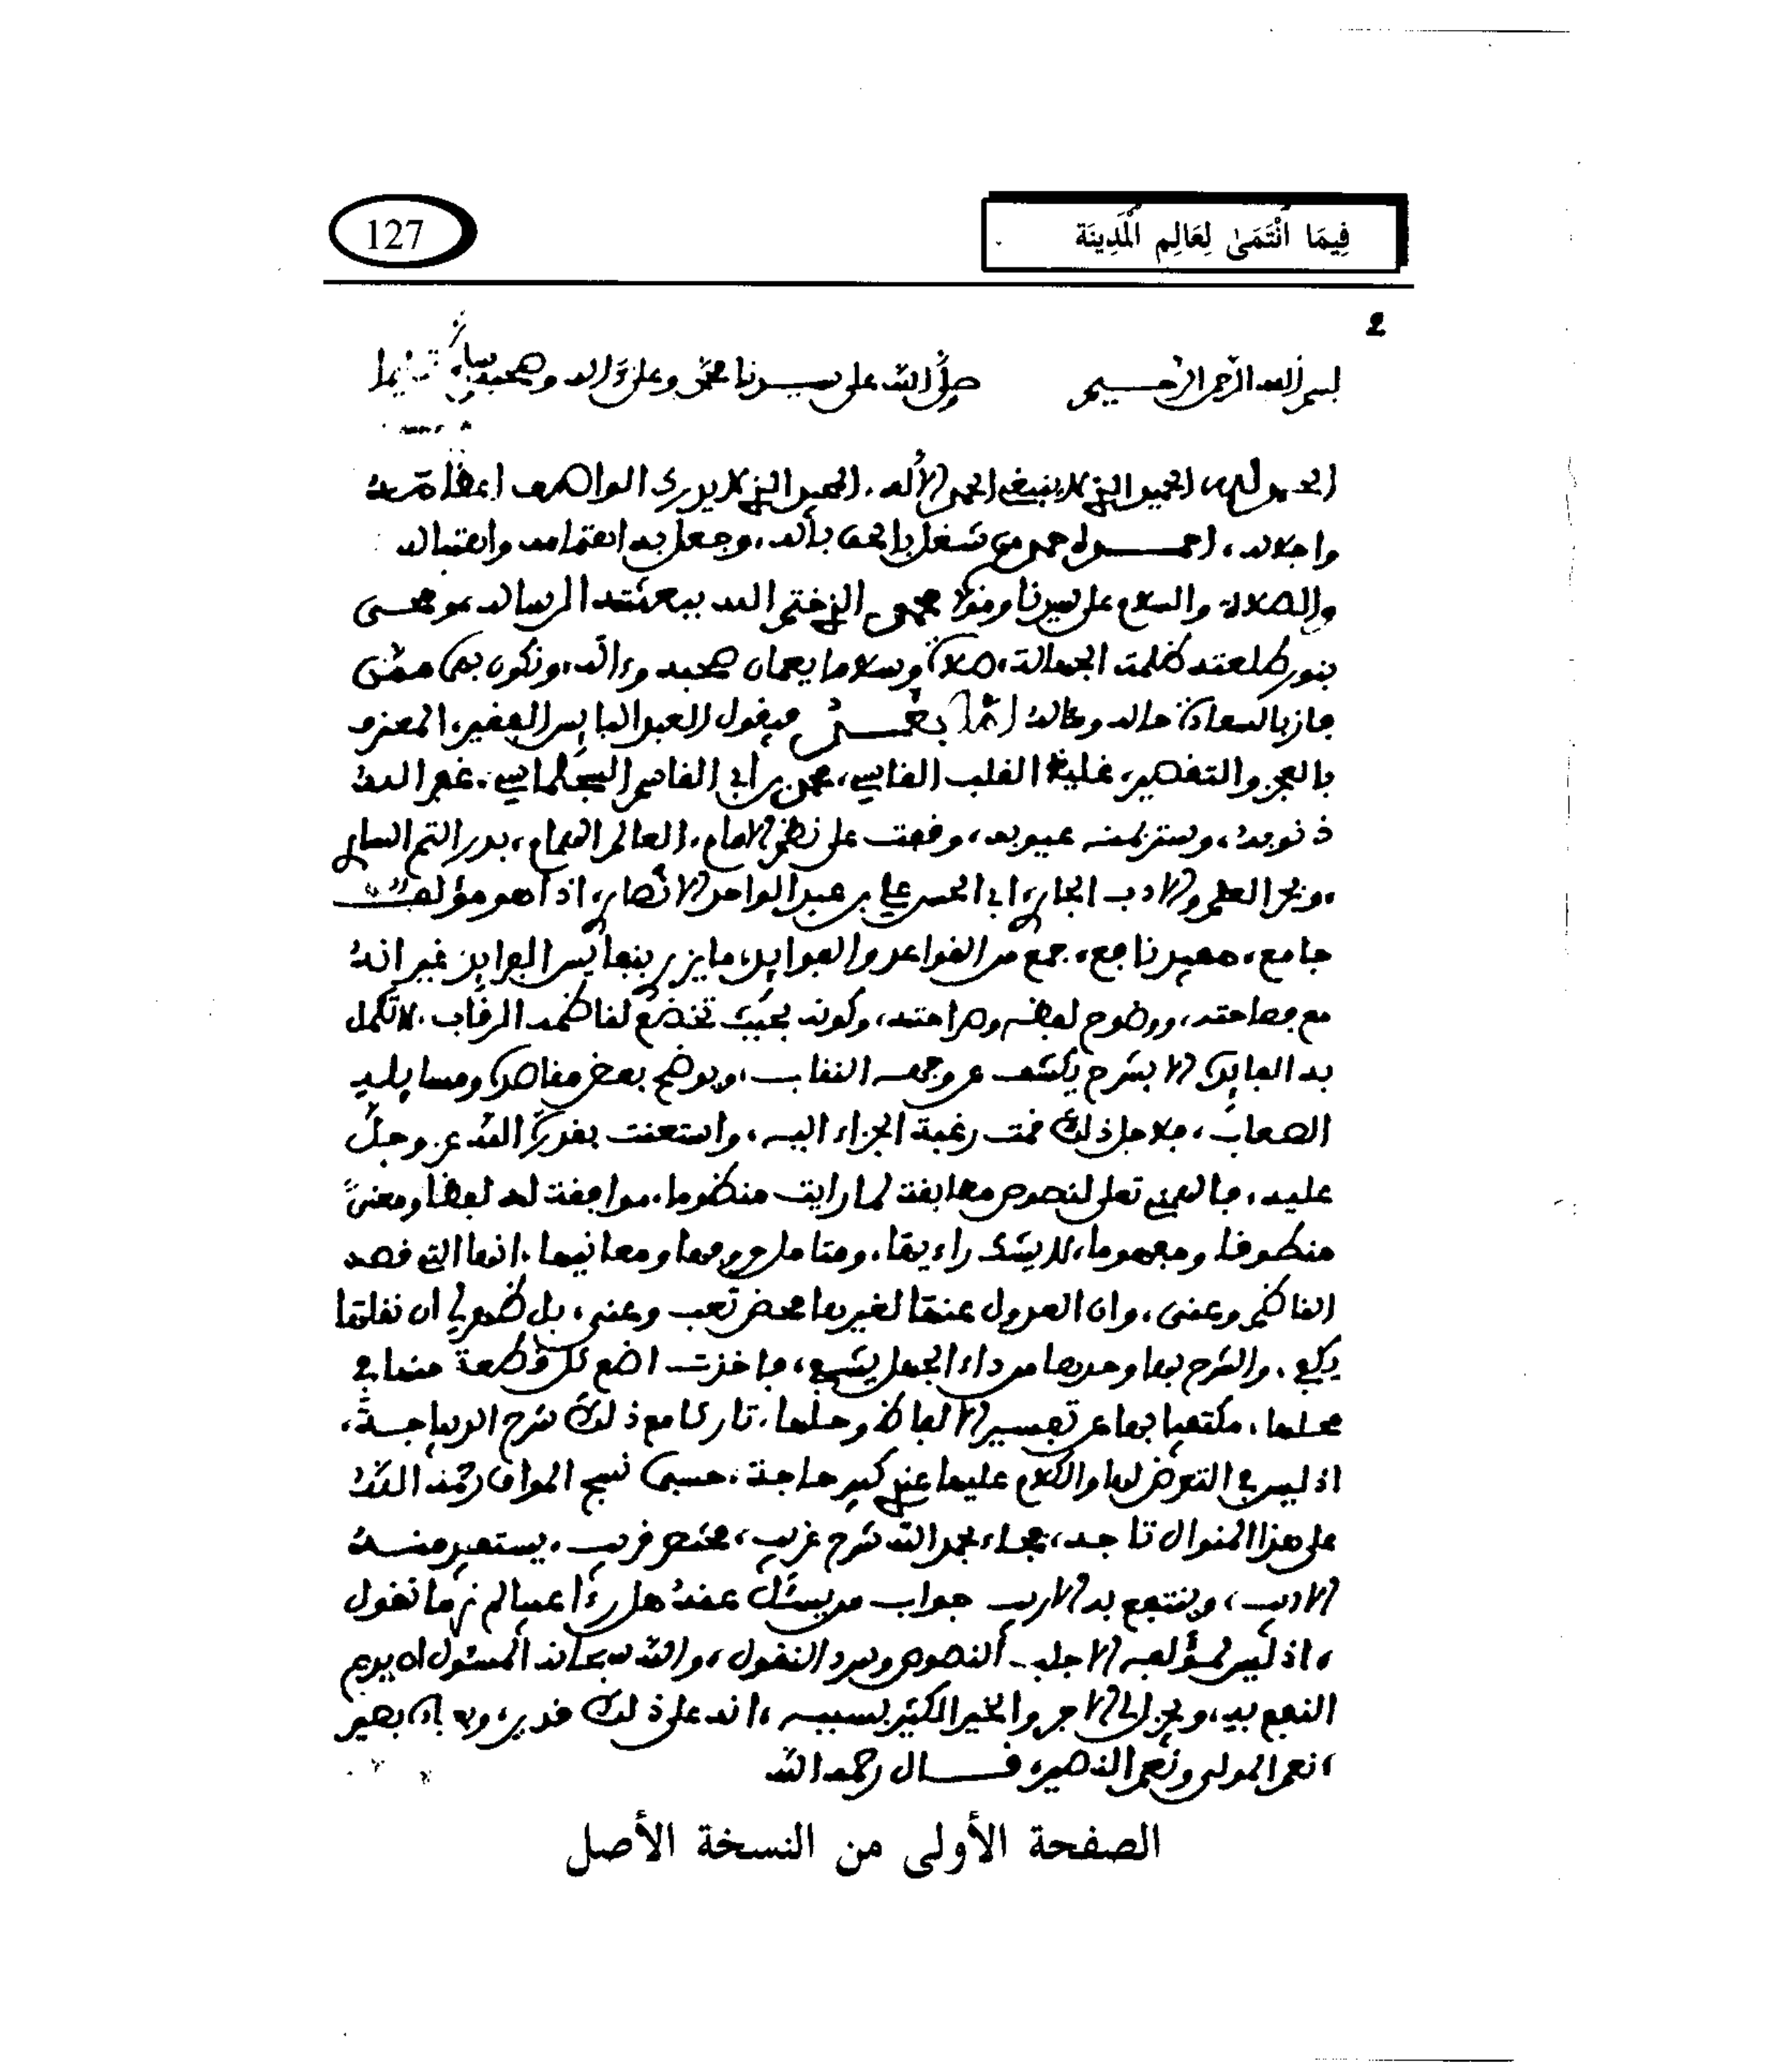 فِيمَا ٱنْتَمَىٰ لِعَالِمِ ٱلْمَدِينَة
127
2
بسم الله الرحمن الرحيم صلى الله على سيدنا محمد وعلى ءاله وصحبه وسلم تسليما
الحمد لله الحميد الذي لا ينبغي الحمد الا له، المجيد الذي لا يدرك الواصف
واجلاله، احمده حمد من شغل بالحق باله، وجعل به اهتمامه واهتباله
والصلاة والسلام على سيدنا ومولانا محمد الذي ختم الله ببعثته الرساله ومحى
بنور طلعته ظلمة الجهالة، صلاة وسلاما يعمان صحبه وءاله، ونكون بهما ممن
فاز بالسعادة حاله ومثاله اما بعد فيقول العبد البايس الفقير، المعترف
بالعجز والتقصير، غليظ القلب القاسي، محمد بن أبي القاسم السجلماسي، غفر الله
ذنوبه، وستر بمنه عيوبه، وقفت على نظم الامام، العالم الهمام، بدر التم الساري
، وبحر العلم والادب الجاري، ابي الحسن علي بن عبد الواحد الانصاري، اذا هو مؤلف
جامع، مفيد نافع، جمع من القواعد والفوايد، ما يزري بنفايس الفرايد غير انه
مع فصاحته، ووضوح لفظه وصراحته، وكونه بحيث تخضع لناظمه الرقاب، لا تكمل
به الفايدة الا بشرح يكشف عن وجهه النقاب، ويوضح بعض مقاصده ومسايله
الصعاب، فلاجل ذلك قمت رغبة الجزاء اليه، واستعنت بقدرة الله عز وجل
عليه، فالهمني تعلى لنصوص مطابقة لما رايت منظوما، موافقة له لفظا ومعنى
منطوقا ومفهوما، لا يشك راءيها، ومتامل حروفها ومعانيها، انها التي قصد
الناظم وعنى، وان العدول عنها لغيرها محض تعب وعنى، بل ظهر لي ان نقلها
يكفي، والشرح بها وحدها من داء الجهل يشفي، فاخذت اضع كل قطعة منها في
محلها، مكتفيا بها عن تفسير الالفاظ وحلها، تاركا مع ذلك شرح الديباجة،
اذ ليس في التعرض لها والكلام عليها عندي كبير حاجة، حسبما نسج المواق رحمه الله
على هذا المنوال تاجه، فجاء بحمد الله شرح غريب، مختصر قريب، يستفيد منه
الاديب، وينتفع به الاريب جواب من يسئل عنه هل رءا عيبا لم نر ما تقول
، اذ ليس لمؤلفه الا جلب النصوص وسرد النقول، والله سبحانه المسئول ان يديم
النفع به، ويجزل لي الاجر والخير الكثير بسببه، انه على ذلك قدير، وبعباده بصير
، نعم المولى ونعم النصير، قال رحمه الله
الصفحة الأولى من النسخة الأصل